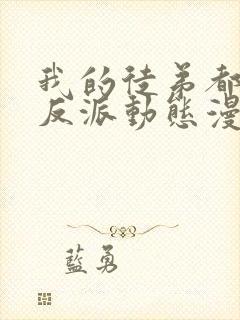 我的徒弟都
反派動態漫
藍勇